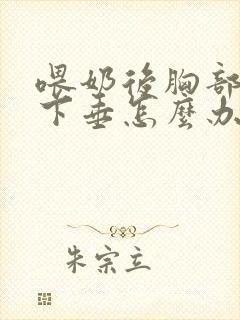 喂奶後胸部
下垂怎麼办
朱宗立